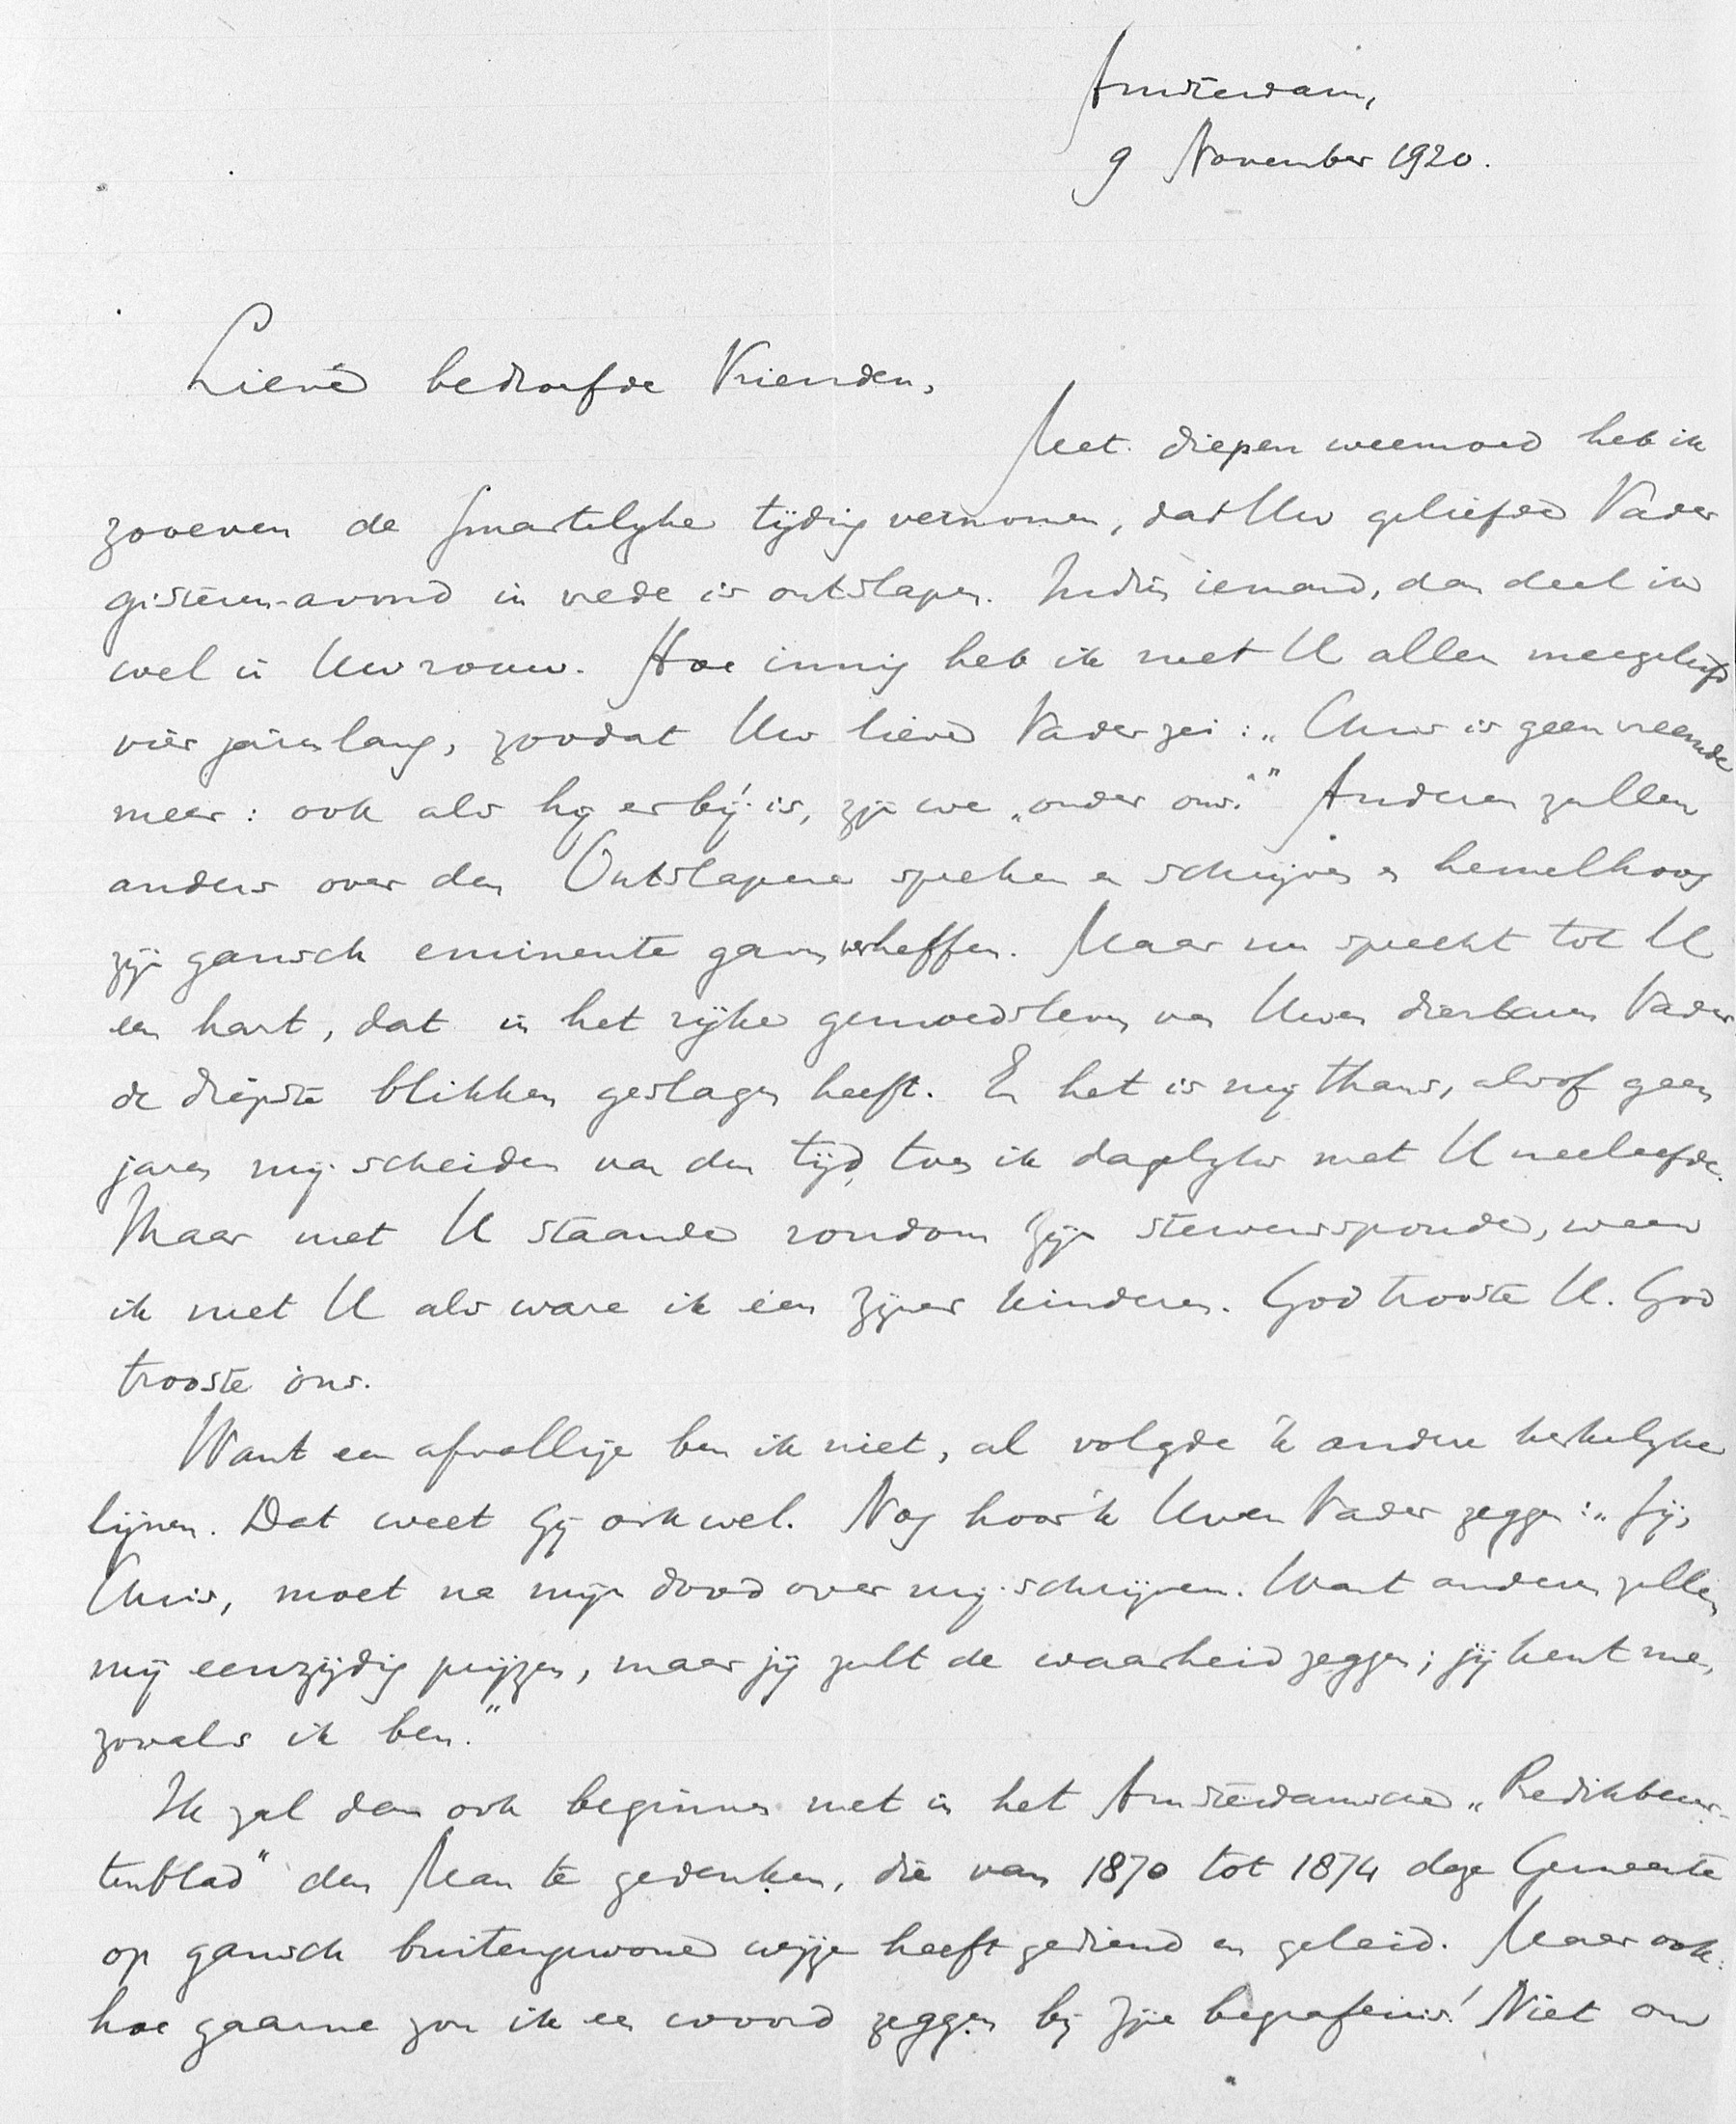 Amsterdam,
9 November 1920.
Lieve bedroefde Vrienden,
Met diepen weemoed heb ik
zoveven de smartelyke tijding vernomen, dat Uw geliefde Vader
gisteren-avond in vrede is ontslapen. Indien iemand, dan deel ik
wel in Uw rouw. Hoe innig heb ik met U allen meegeleefd
vier jaren lang, zoodat Uw lieve Vader zei: „Chris is geen vreemde
meer: ook als hy er bij is, zijn we „onder ons"." Anderen zullen
anders over den Ontslapene spreken en schrijven en hemelhoog
zijn gansch eminente gaven verheffen. Maar nu spreekt tot U
een hart, dat in het rijke gemoedsleven van Uwen dierbaren Vader
de diepste blikken geslagen heeft. En het is mij thans, alsof geen
jaren mij scheiden van den tijd, toen ik dagelyks met U meeleefde.
Maar met U staande rondom Zijn stervenssponde, ween
ik met U als ware ik één Zijner kinderen. God trooste U. God
trooste ons.
Want een afvallige ben ik niet, al volgde 'k andere kerkelyke
lijnen. Dat weet Gij ook wel. Nog hoor 'k Uwen Vader zeggen: „Jij,
Chris, moet na mijn dood over mij schrijven. Want anderen zullen
mij eenzijdig prijzen, maar jij zult de waarheid zeggen; jij kent me,
zooals ik ben."
Ik zal dan ook beginnen met in het Amsterdamsche „Predikbeur-
tenblad" den Man te gedenken, die van 1870 tot 1874 deze Gemeente
op gansch buitengewone wijze heeft gediend en geleid. Maar ook:
hoe gaarne zou ik een woord zeggen bij Zijn begrafenis! Niet om